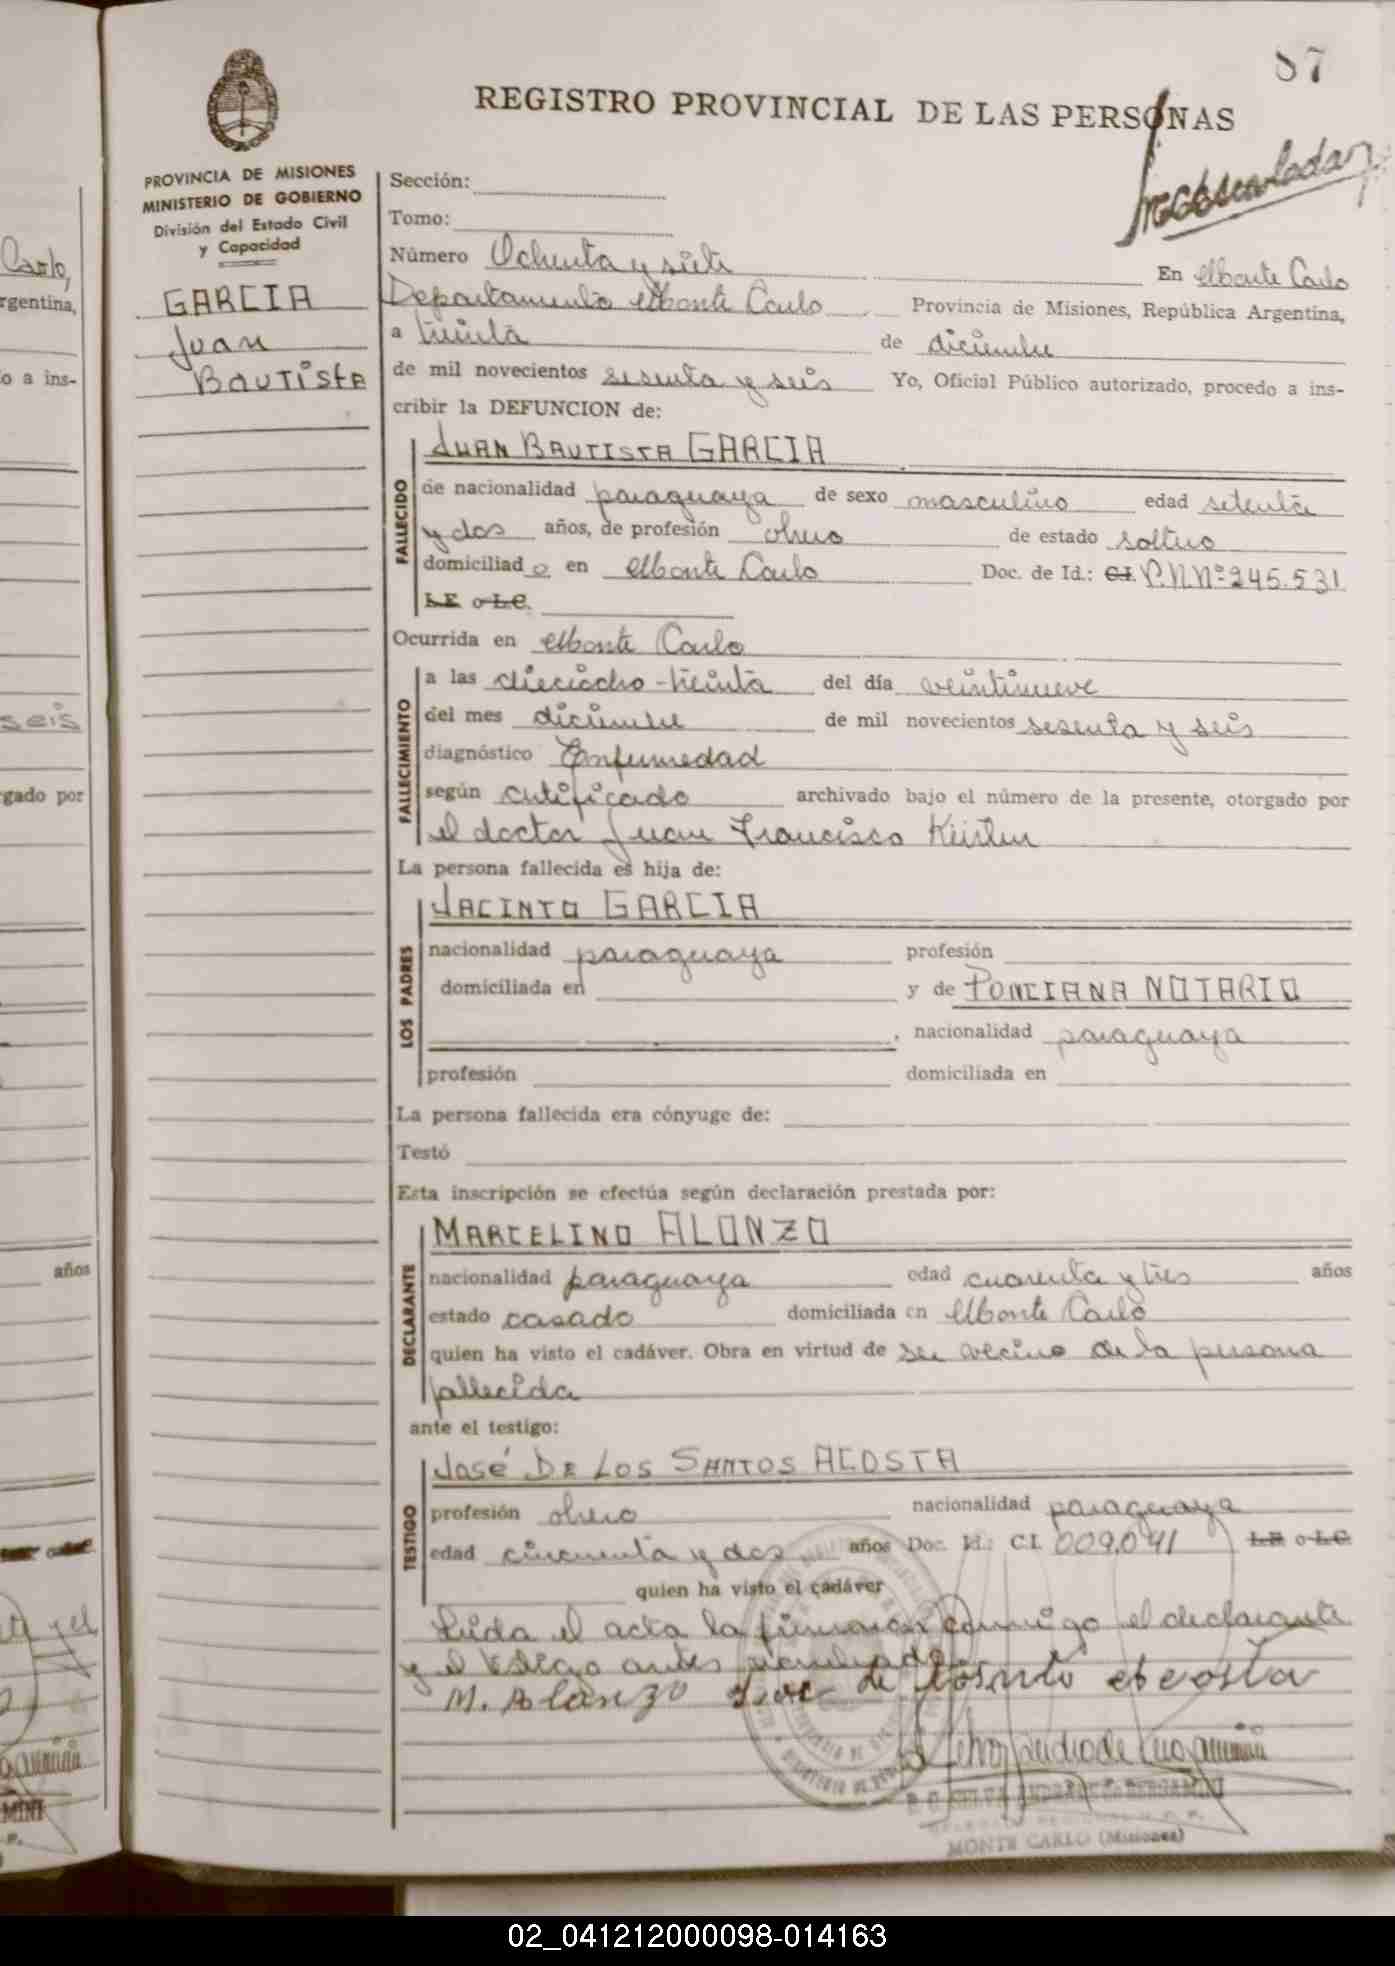 87
REGISTRO PROVINCIAL DE LAS PERSONAS
PROVINCIA DE MISIONES
MINISTERIO DE GOBIERNO
División del Estado Civil
y Capacidad
GARCIA
Juan
BAUTISTA
Sección:
Tomo:
Número Ochenta y siete En Monte Carlo
Departamento Monte Carlo Provincia de Misiones, República Argentina,
a treinta de diciembre
de mil novecientos sesenta y seis Yo, Oficial Público autorizado, procedo a ins-
cribir la DEFUNCION de:
FALLECIDO
JUAN BAUTISTA GARCIA
de nacionalidad paraguaya de sexo masculino edad setenta
y dos años, de profesión obrero de estado soltero
domiciliado en Monte Carlo Doc. de Id.: C.I. P.N Nº 245.531
L.E. o L.C.
Ocurrida en Monte Carlo
FALLECIMIENTO
a las dieciocho-treinta del día veintinueve
del mes diciembre de mil novecientos sesenta y seis
diagnóstico Enfermedad
según certificado archivado bajo el número de la presente, otorgado por
el doctor Juan Francisco
La persona fallecida es hija de:
LOS PADRES
JACINTO GARCIA
nacionalidad paraguaya profesión
domiciliada en y de PONCIANA NOTARIO
, nacionalidad paraguaya
profesión domiciliada en
La persona fallecida era cónyuge de:
Testó
Esta inscripción se efectúa según declaración prestada por:
DECLARANTE
MARCELINO ALONZO
nacionalidad paraguaya edad cuarenta y tres años
estado casado domiciliada en Monte Carlo
quien ha visto el cadáver. Obra en virtud de ser vecino de la persona
fallecida
ante el testigo:
TESTIGO
José DE LOS SANTOS ACOSTA
profesión obrero nacionalidad paraguaya
edad cincuenta y dos años Doc. Id.: C.I. 009.041 L.E. o L.C.
quien ha visto el cadáver
Leída el acta la firman conmigo el declarante
y el testigo antes nombrado
M. Alanzo
MONTE CARLO (Misiones)
Carlo,
rgentina,
o a ins-
seis
gado por
años
y el
MINI
02_041212000098-014163